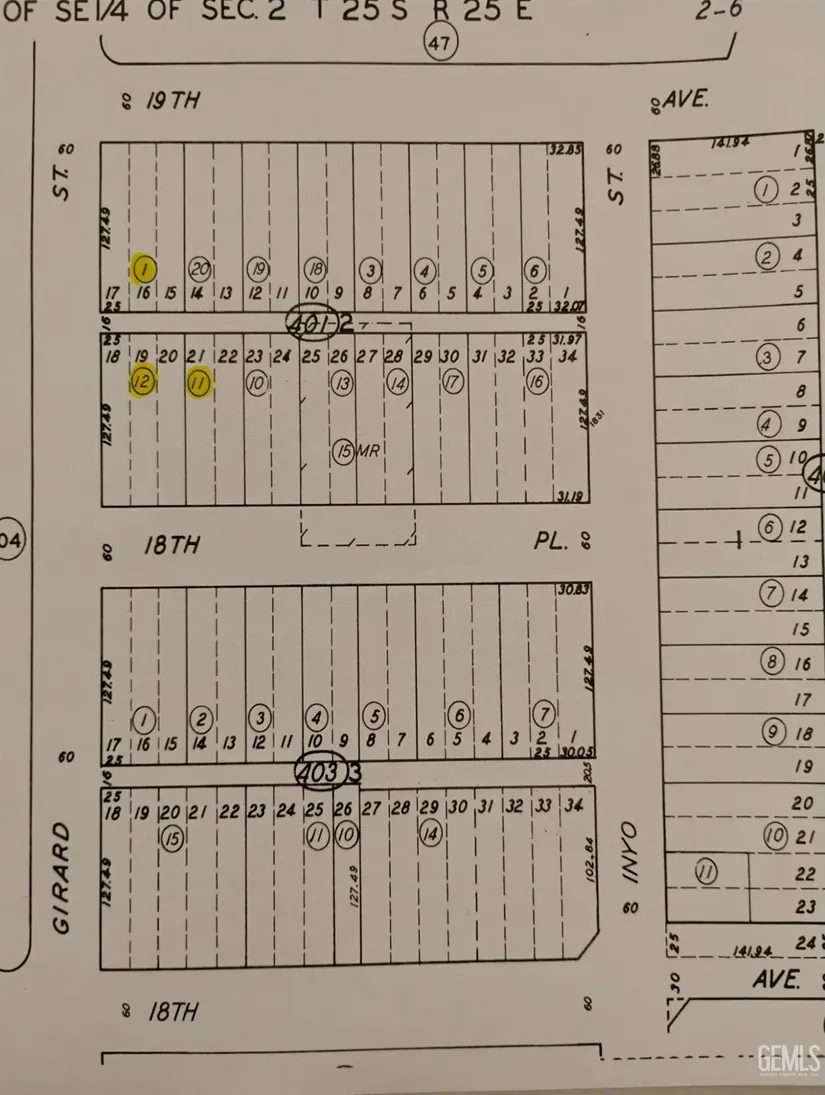 OF SE 1/4 OF SEC. 2 T 25 S R 25 E 2-6
47
60 19TH 60 AVE.
60 ST. 32.85 60 ST.
127.49 127.49
1 20 19 18 3 4 5 6
17 16 15 14 13 12 11 10 9 8 7 6 5 4 3 2 1
25 25 32.07
16 401-2 16
25 25 31.97
18 19 20 21 22 23 24 25 26 27 28 29 30 31 32 33 34
12 11 10 13 14 17 16
127.49 127.49 1831
15 MR
31.19
04
60 18TH PL. 60
30.83
127.49 127.49
1 2 3 4 5 6 7
17 16 15 14 13 12 11 10 9 8 7 6 5 4 3 2 1
60 25 25 30.05
16 403 3 20.5
25
18 19 20 21 22 23 24 25 26 27 28 29 30 31 32 33 34
15 11 10 14
127.49 127.49 102.84
GIRARD INYO
60
60 18TH 60
141.94
26.88 1
1 2 25
3
2 4
5
6
3 7
8
4 9
5 10
11
6 12
13
7 14
15
8 16
17
9 18
19
20
10 21
11 22
23
25 141.94 24
30 AVE.
GEMLS